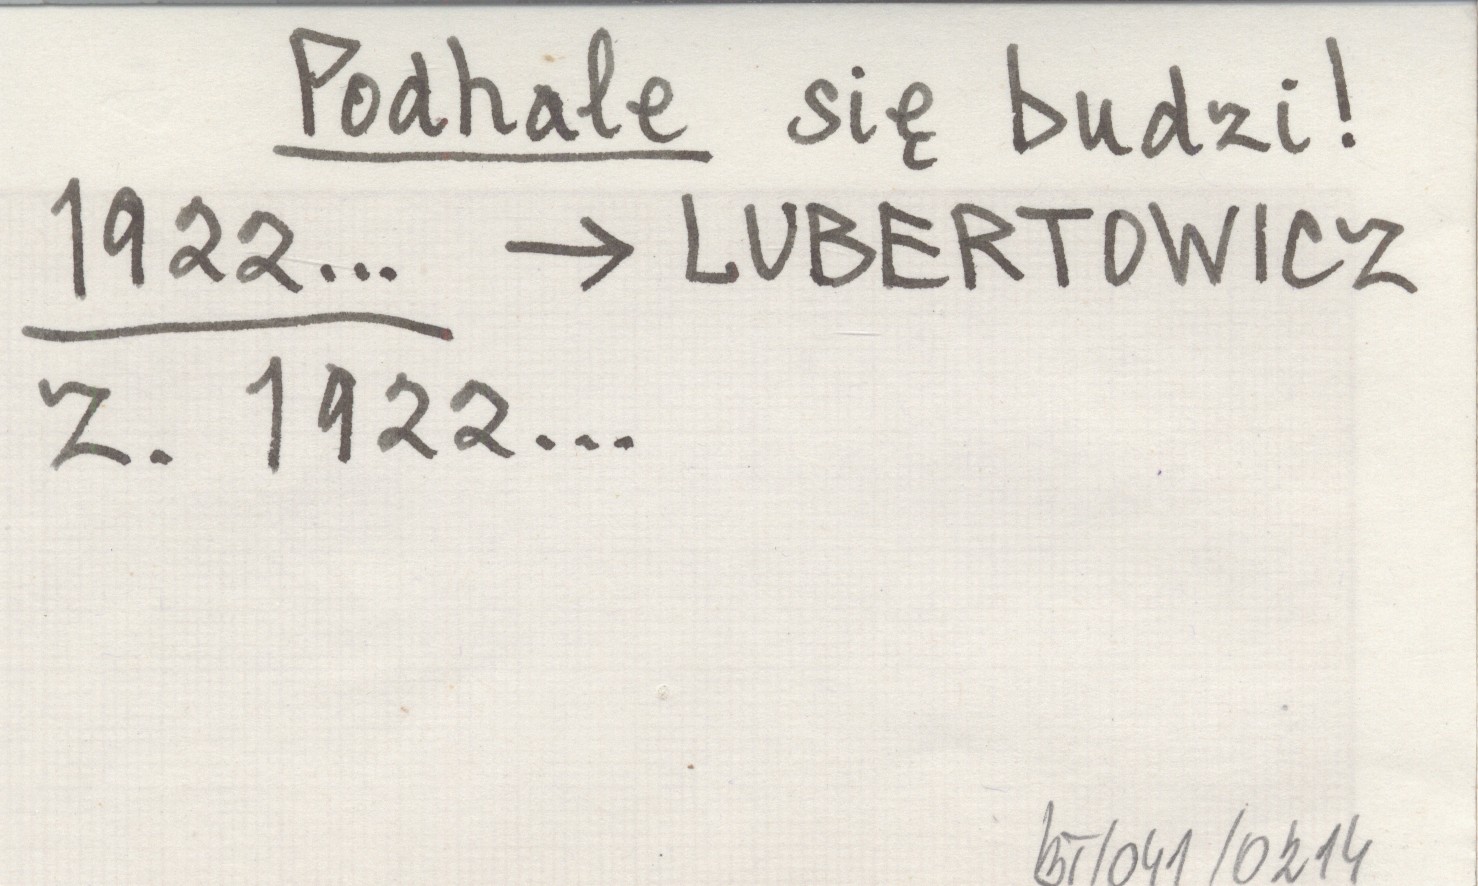 Podhale się budzi!
1922... → LUBERTOWICZ
z. 1922...
/041/0214